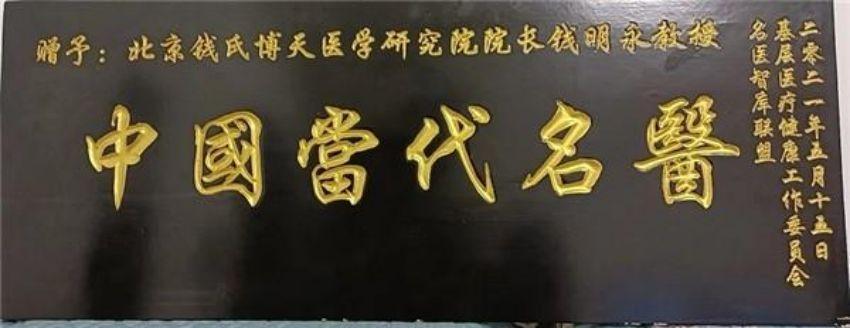 赠予：北京钱氏博天医学研究院院长钱明永教授
中國當代名醫
名医智库联盟
基层医疗健康工作委员会
二零二一年五月十五日